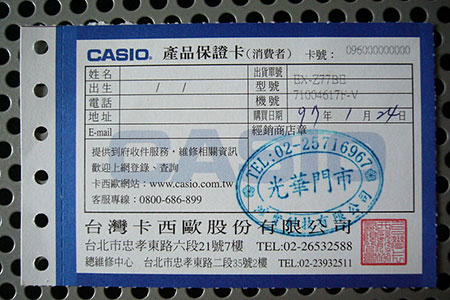 CASIO® 產品保證卡(消費者) 卡號: 096000000000
姓名
出生 / /
電話
地址
E-mail
出貨票號
型號 EX-Z77BE
機號 71004617F-V
購買日期 97 年 1 月 24 日
經銷商店章
CASIO
提供到府收件服務，維修相關資訊
歡迎上網登錄、查詢
卡西歐網站: www.casio.com.tw
客服專線: 0800-686-899
TEL:02-25716967
光華門市
有限公司
台灣卡西歐股份有限公司
台北市忠孝東路六段21號7樓 TEL:02-26532588
總維修中心 台北市忠孝東路二段35號2樓 TEL:02-23932511